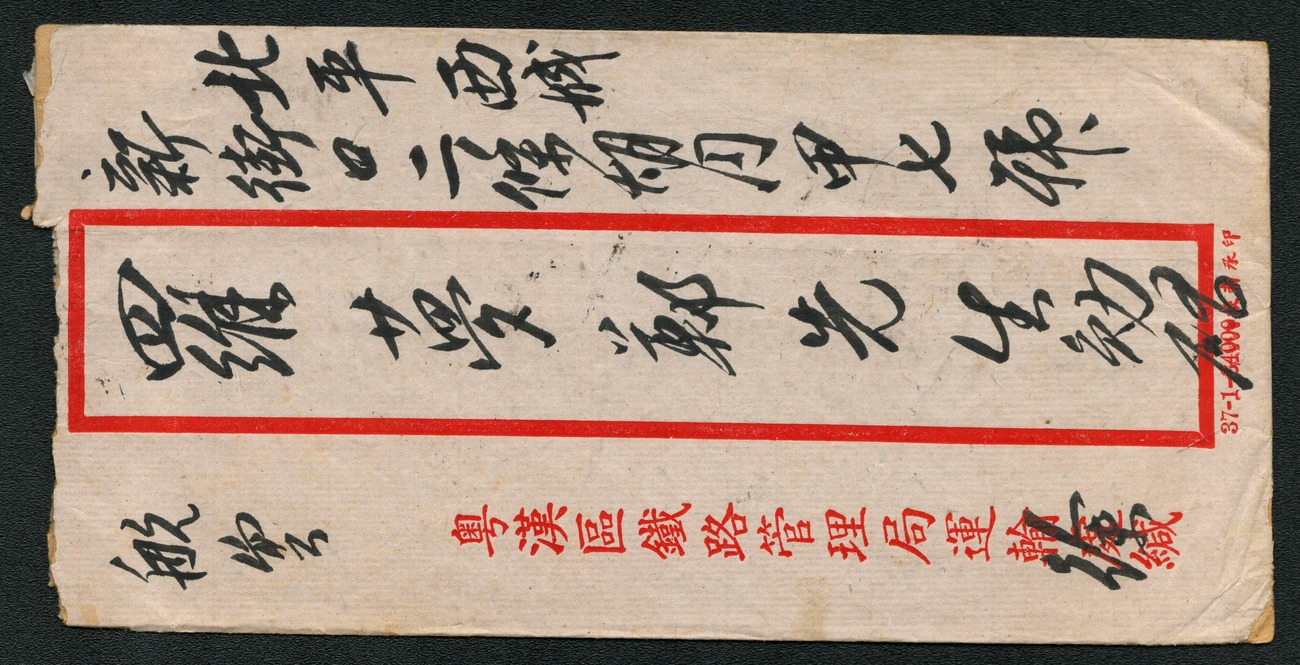 北平西城
新街口二條胡同甲七號
羅夢鄭先生勛啟
37-1- 承印
航空
粵漢區鐵路管理局運輸處緘